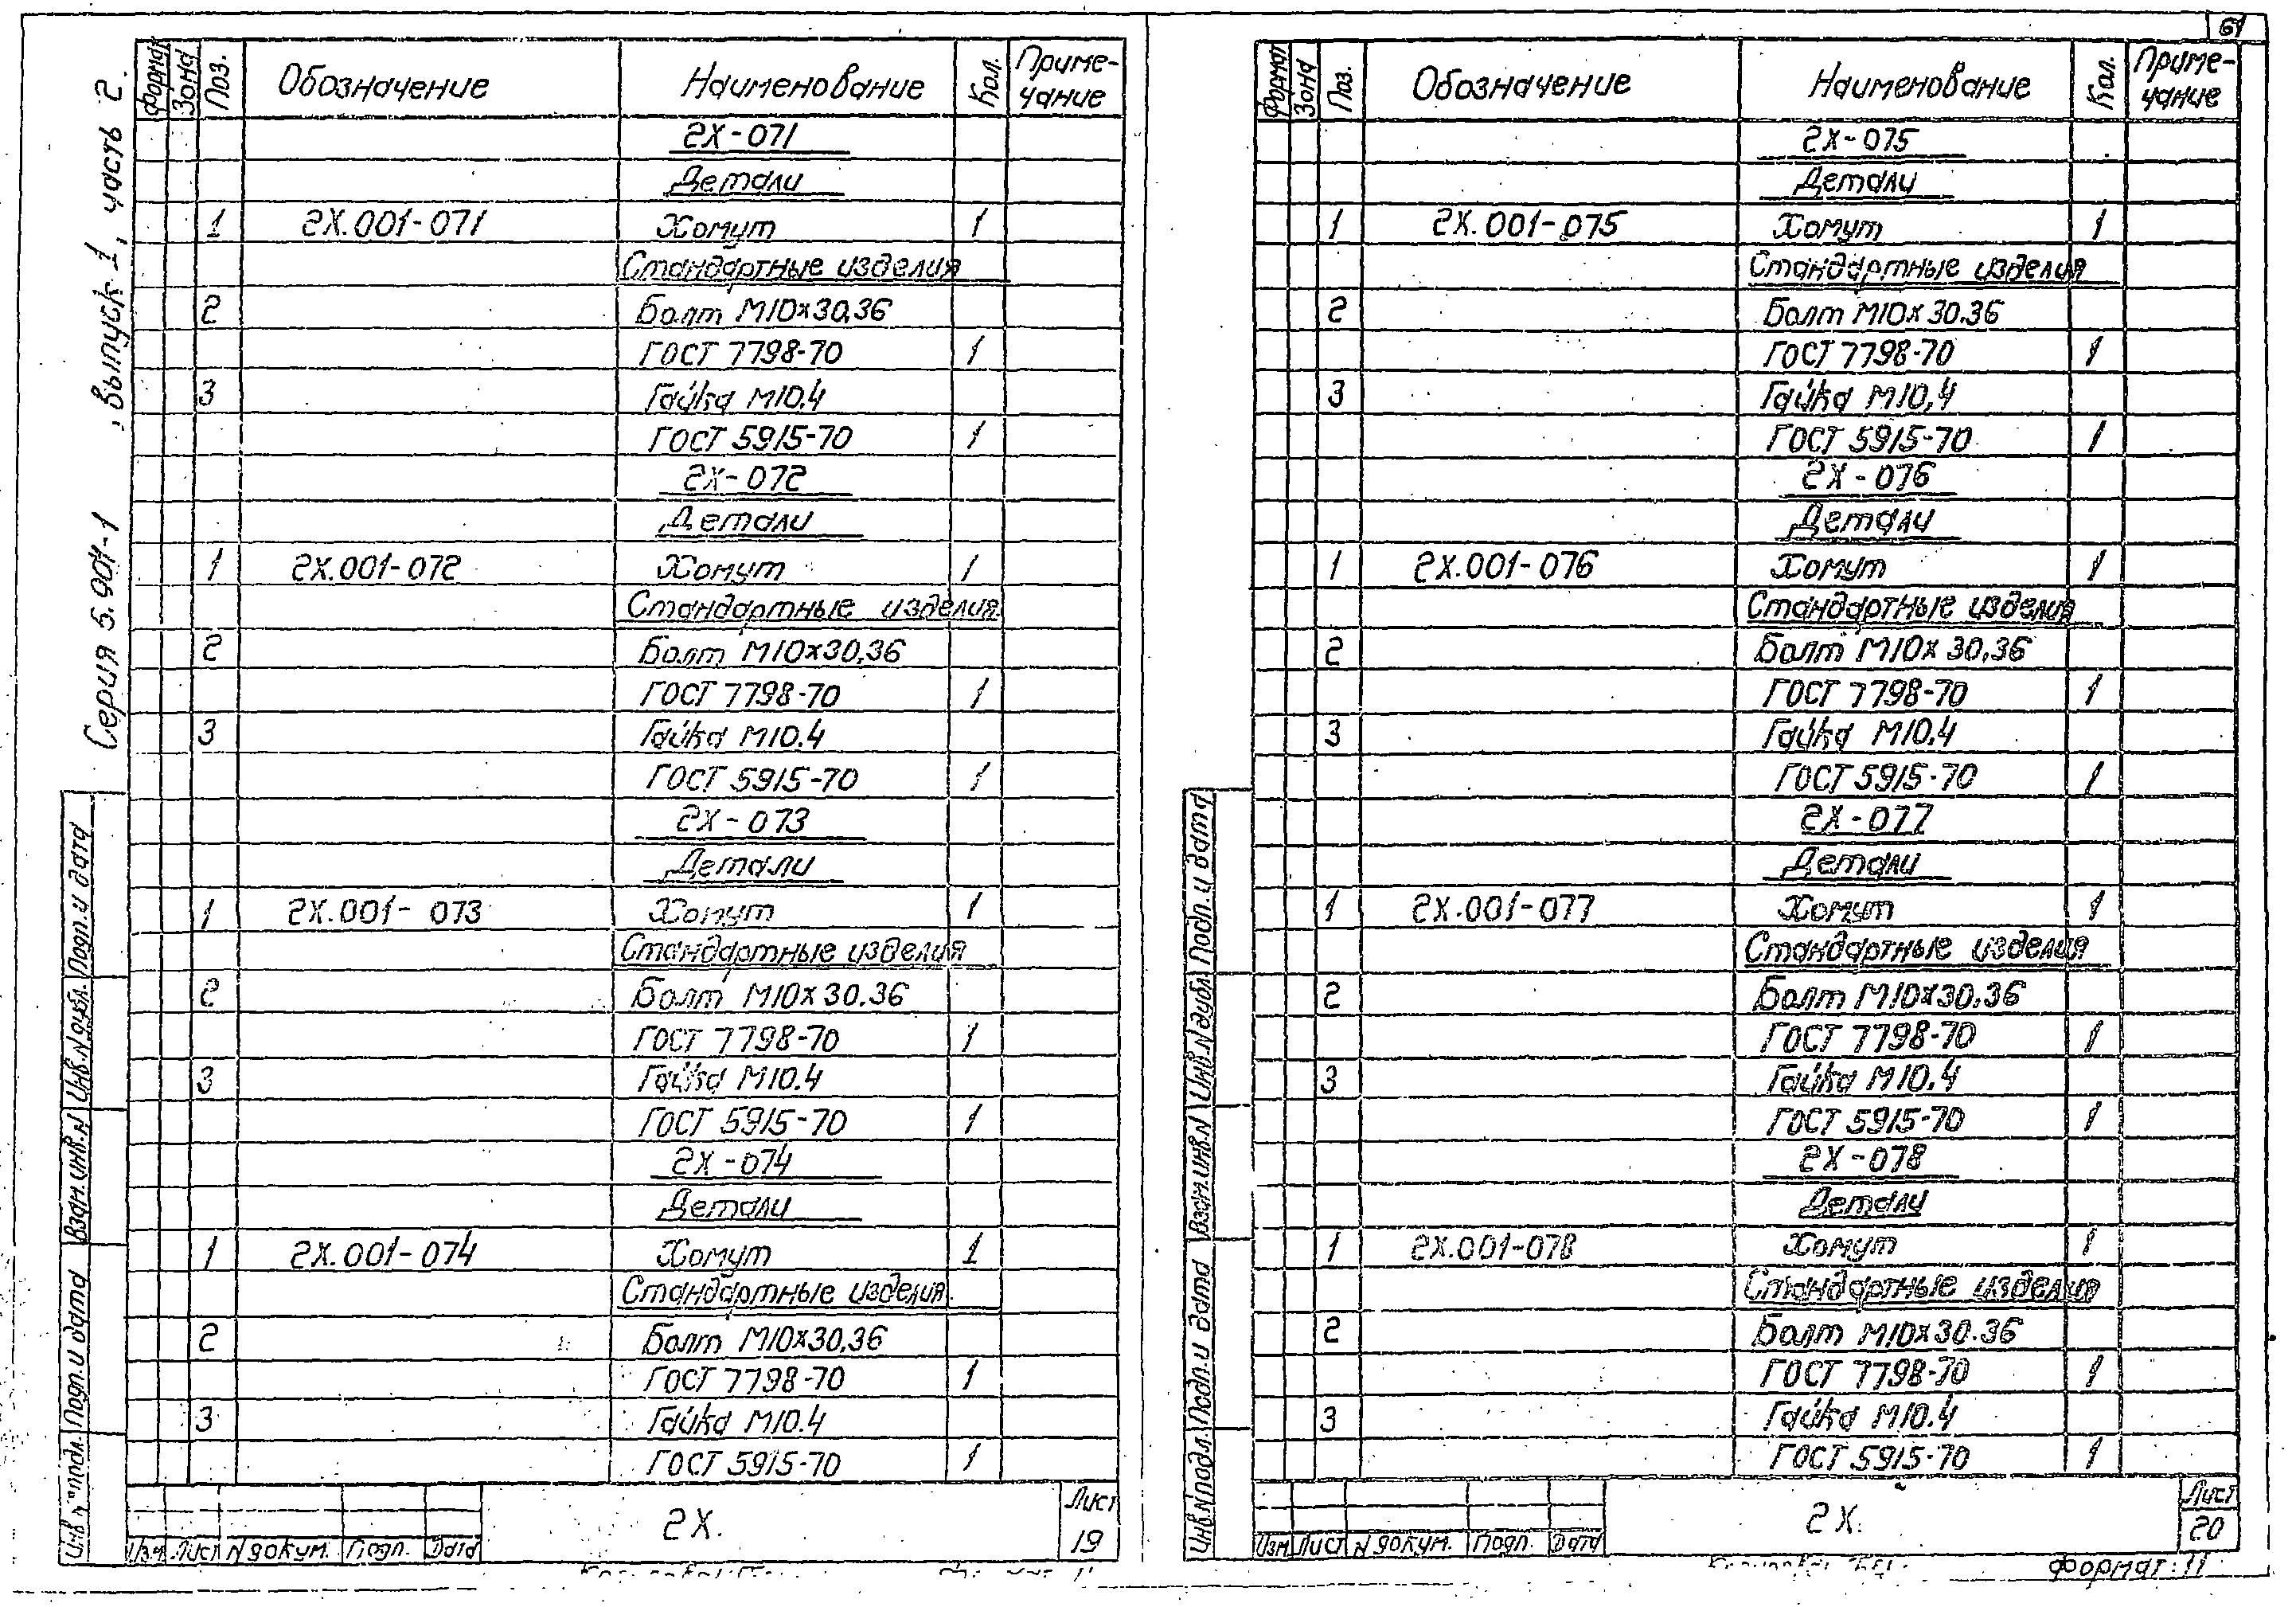 61
Серия 5.901-1 , выпуск 1, часть 2.
Формат Зона Поз. Обозначение Наименование Кол. Приме-чание
2Х-071
Детали
1 2Х.001-071 Хомут 1
Стандартные изделия
2 Болт М10х30.36
ГОСТ 7798-70 1
3 Гайка М10.4
ГОСТ 5915-70 1
2Х-072
Детали
1 2Х.001-072 Хомут 1
Стандартные изделия
2 Болт М10х30.36
ГОСТ 7798-70 1
3 Гайка М10.4
ГОСТ 5915-70 1
2Х-073
Детали
1 2Х.001-073 Хомут 1
Стандартные изделия
2 Болт М10х30.36
ГОСТ 7798-70 1
3 Гайка М10.4
ГОСТ 5915-70 1
2Х-074
Детали
1 2Х.001-074 Хомут 1
Стандартные изделия
2 Болт М10х30.36
ГОСТ 7798-70 1
3 Гайка М10.4
ГОСТ 5915-70 1
Инв.N подл. Подп. и дата Взам.инв.N Инв.N дубл. Подп. и дата
Изм Лист N докум. Подп. Дата
2Х.
Лист
19
Формат Зона Поз. Обозначение Наименование Кол. Приме-чание
2Х-075
Детали
1 2Х.001-075 Хомут 1
Стандартные изделия
2 Болт М10х30.36
ГОСТ 7798-70 1
3 Гайка М10.4
ГОСТ 5915-70 1
2Х-076
Детали
1 2Х.001-076 Хомут 1
Стандартные изделия
2 Болт М10х30.36
ГОСТ 7798-70 1
3 Гайка М10.4
ГОСТ 5915-70 1
2Х-077
Детали
1 2Х.001-077 Хомут 1
Стандартные изделия
2 Болт М10х30.36
ГОСТ 7798-70 1
3 Гайка М10.4
ГОСТ 5915-70 1
2Х-078
Детали
1 2Х.001-078 Хомут 1
Стандартные изделия
2 Болт М10х30.36
ГОСТ 7798-70 1
3 Гайка М10.4
ГОСТ 5915-70 1
Инв.N подл. Подп. и дата Взам.инв.N Инв.N дубл. Подп. и дата
Изм Лист N докум. Подп. Дата
2Х.
Лист
20
Формат: 11